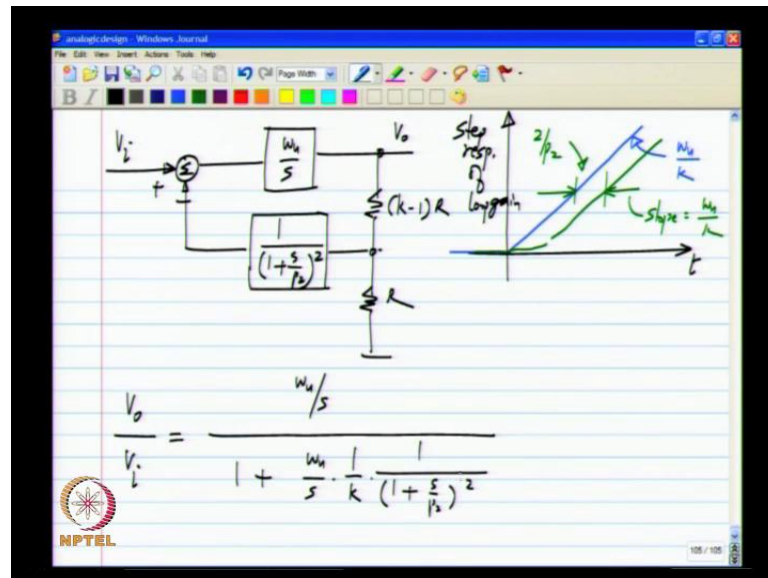 analogicdesign - Windows Journal
File Edit View Insert Actions Tools Help
Page Width
B I
V_i
+
-
Σ
ω_u/s
V_o
(k-1)R
1/(1+s/p_2)^2
R
Step resp. of loop gain
2/p_2
ω_u/k
slope = ω_u/k
t
V_o/V_i = (ω_u/s)/(1 + ω_u/s · 1/k · 1/(1+s/p_2)^2)
NPTEL
105 / 105